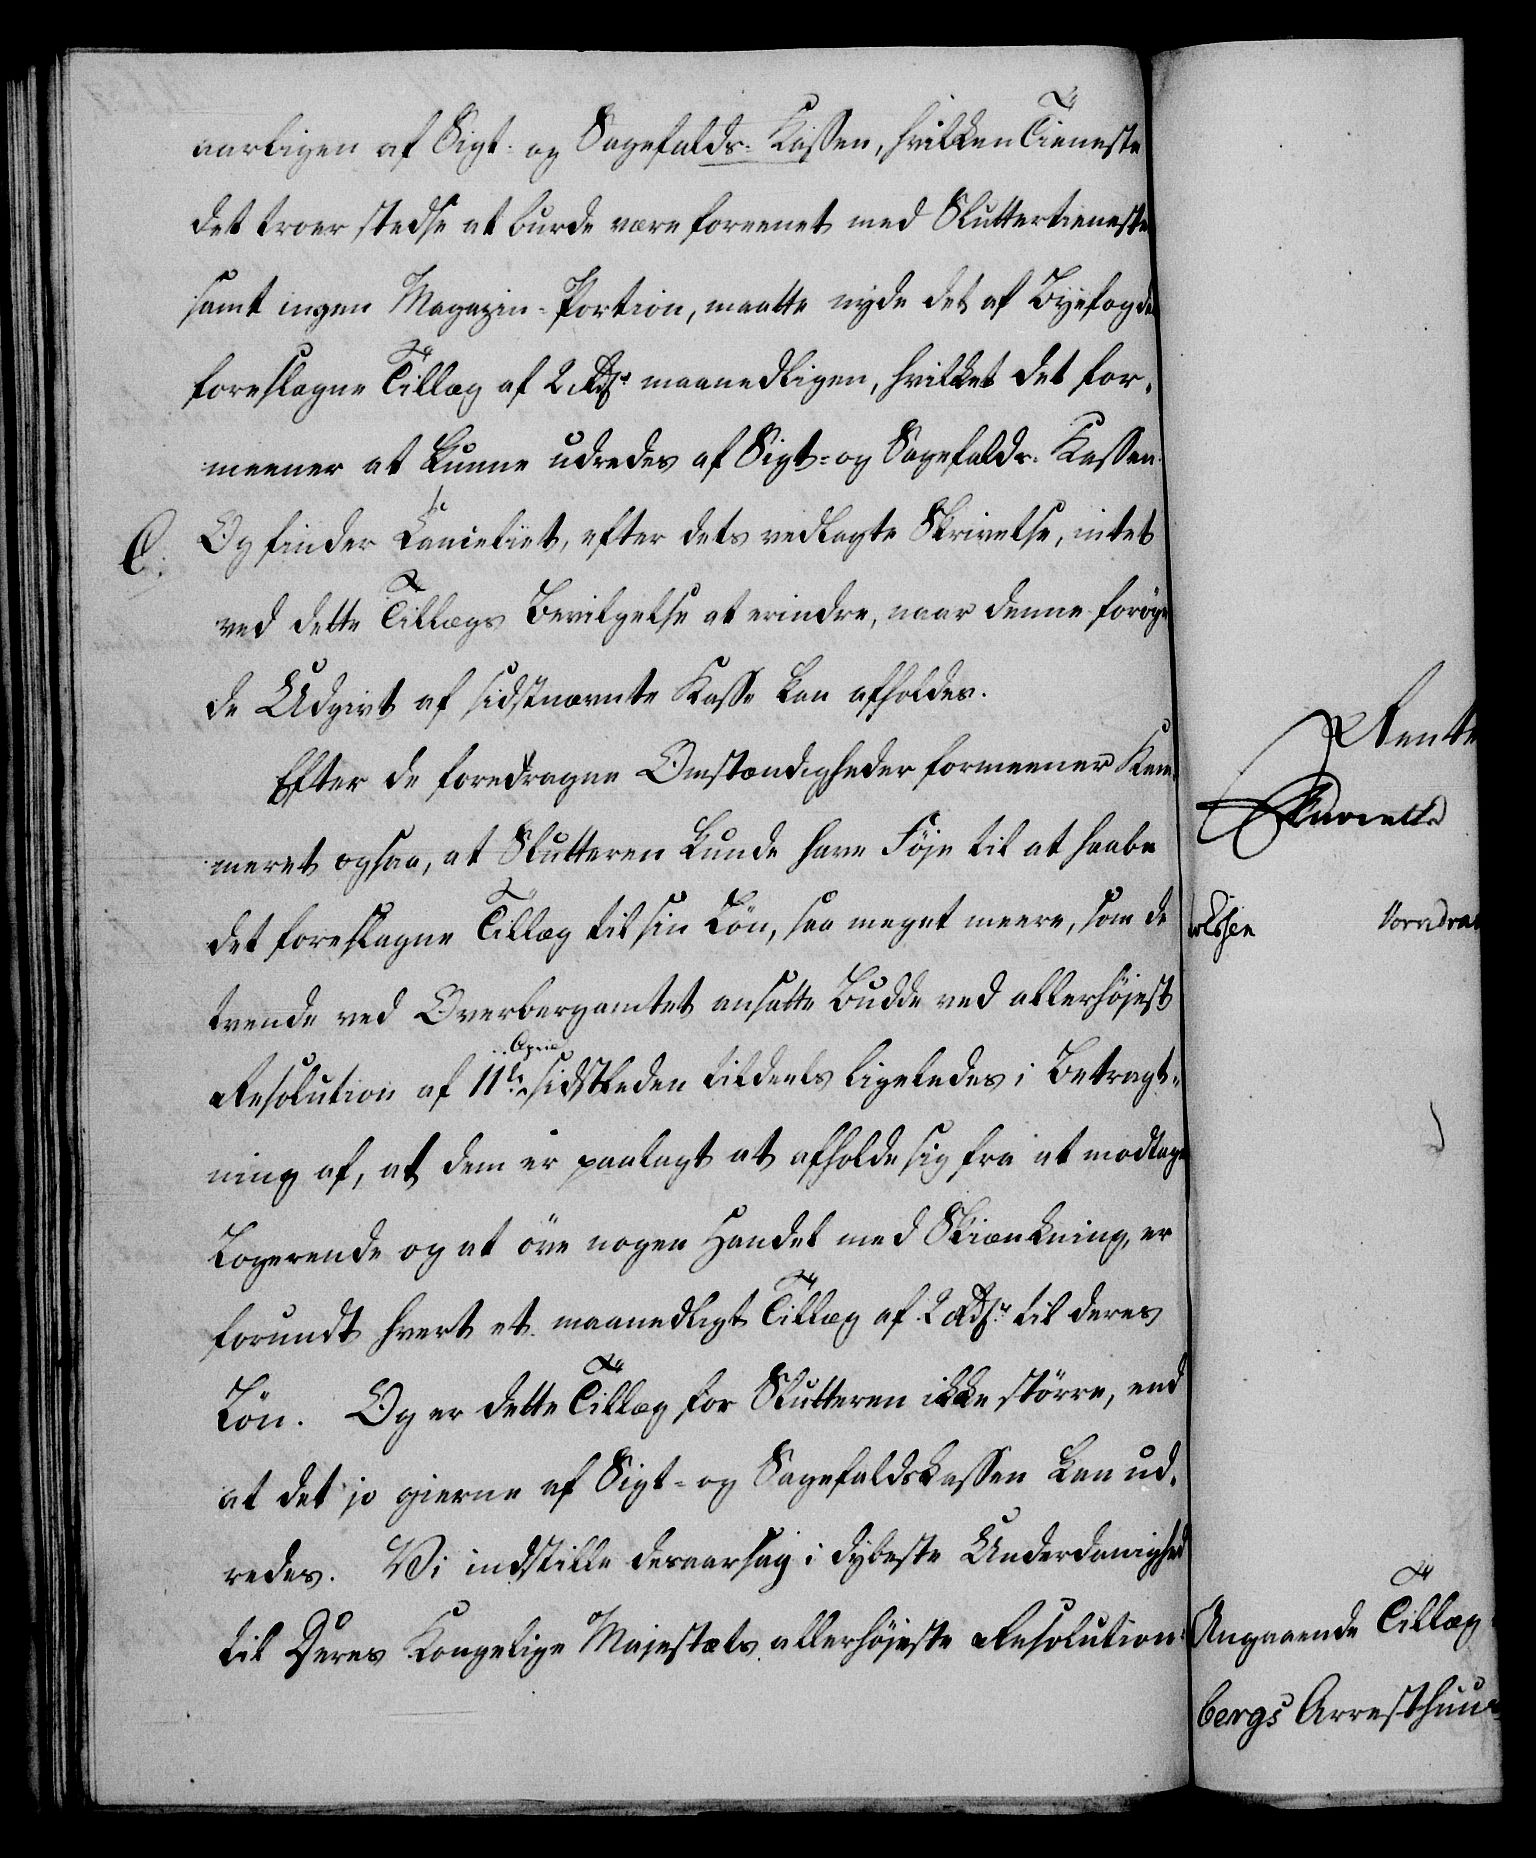 aarligen af Sigt- og Sagefalds-Kassen, hvilken Tieneste
det troer stedse at burde være foreenet med Sluttertieneste
samt ingen Magazin-Portion, maatte nyde det af Byefogde
foreslagne Tillæg af 2 Rdlr maanedligen, hvilket det for-
meener at kunne udredes af Sigt- og Sagefalds-Kassen.
C. Og finder Canceliet, efter dets vedlagte Skrivelse, intet
ved dette Tillægs Bevilgelse at erindre, naar denne forøge
de Udgivt af sidstnævnte Kasse kan afholdes.
Efter de foredragne Omstændigheder formeener Kam
meret ogsaa, at Slutteren kunde have Føje til at haabe
det foreslagne Tillæg til sin Løn, saa meget meere, som de
trende ved Overbergamtet ansatte Budde ved allerhøjest
Resolution af 11te April sidstleden tildeels ligeledes i Betragt-
ning af, at dem er paalagt at afholde sig fra at modtage
Logerende og at øve nogen Handel med Skiænkning, er
forundt hvert et maanedligt Tillæg af 2 Rdlr til deres
Løn. Og er dette Tillæg for Slutteren ikke større, end
at det jo gierne af Sigt- og Sagefaldskassen kan ud-
redes. Vi indstille desaarsag i dybeste Underdanighed
til Deres Kongelige Majestæts allerhøjeste Resolution:
Rente
Angaaende Tillæg
bergs Arresthuus